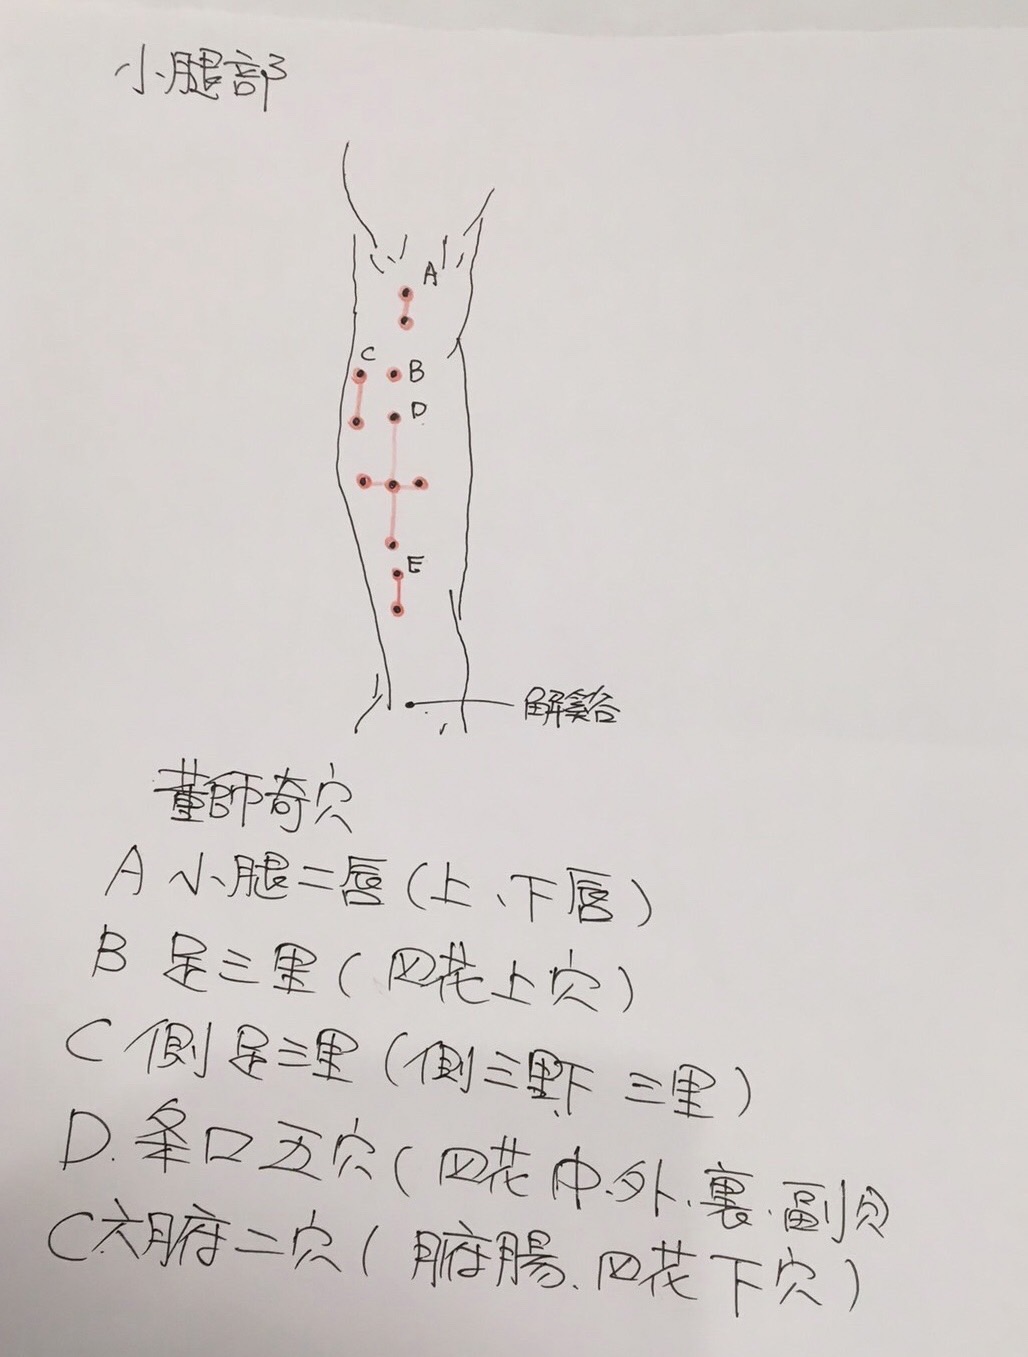 小腿部
A
C
B
D
E
解谿
董師奇穴
A 小腿二唇(上、下唇)
B 足三里(四花上穴)
C 側足三里(側三里下 三里)
D. 条口五穴(四花中.外.裏.副
C六腑二穴(腑腸.四花下穴)